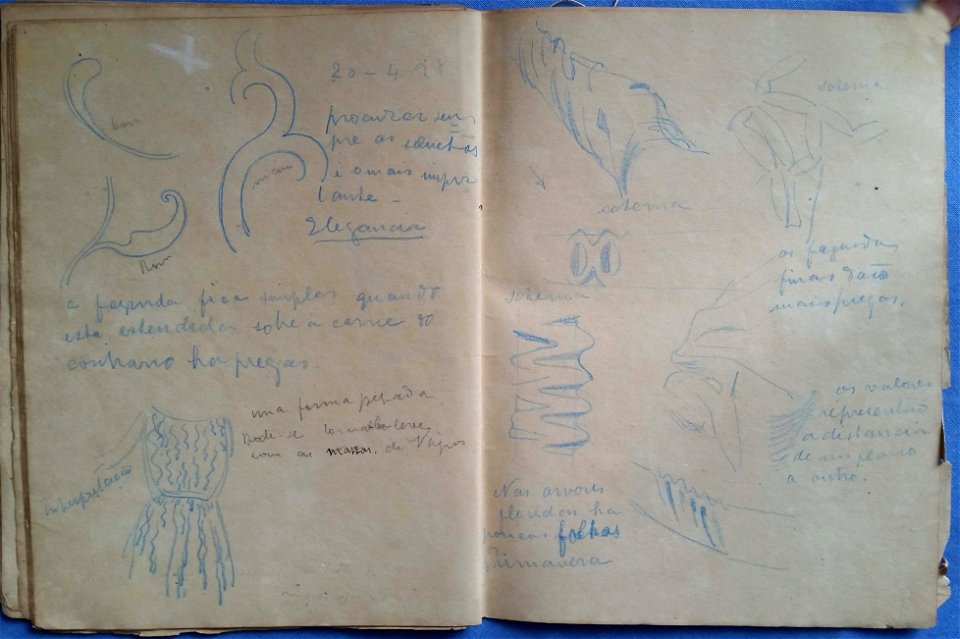 bom
20-4
procurar sem
pre as
é o mais impor
tante -
Elegancia
Bom
a fazenda fica simples quando
esta estendida, sobre a carne ao
contrario ha pregas.
uma forma pesada
pode-se tornal-a leve
com as de
interpretação
schema
schema
schema
as fazendas
finas dão
mais pregas.
os valores
representão
a distancia
de um plano
a outro.
Nas arvores
floridas ha
poucas folhas
Primavera